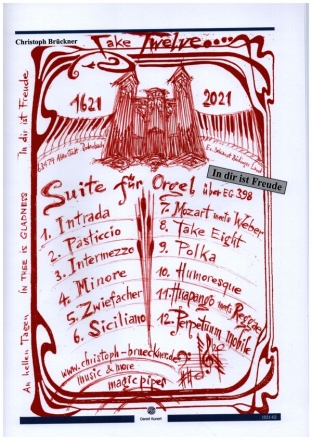 Christoph Brückner
Take Twelve....
1621
2021
63674 Altenstadt
In dir ist Freude
Suite für Orgel über EG 398
1. Intrada
2. Pasticcio
3. Intermezzo
4. Minore
5. Zwiefacher
6. Siciliano
7. Mozart meets Weber
8. Take Eight
9. Polka
10. Humoresque
11. Huapango meets Reggae
12. Perpetuum mobile
www.christoph-brueckner.de
music & more
magic pipes
An hellen Tagen IN THEE IS GLADNESS In dir ist Freude